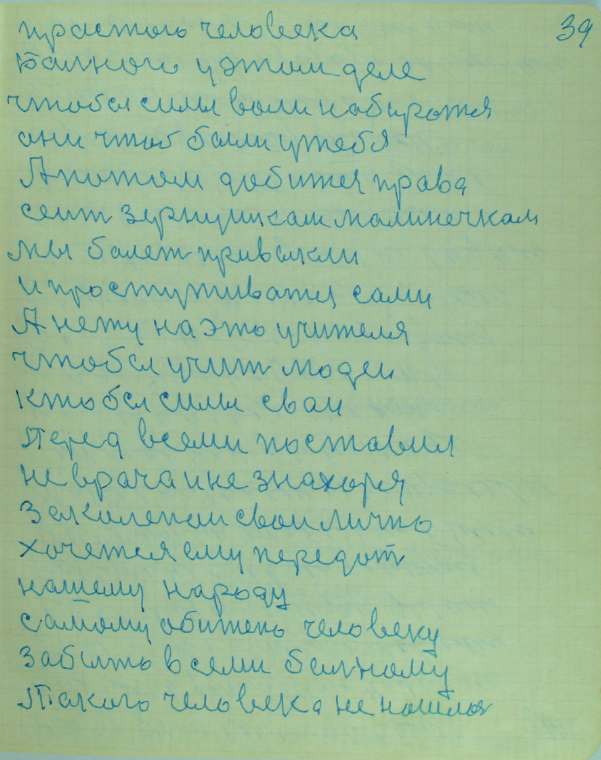 39
прастого человека
балного у этом деле
чтобы силы воли набыратся
они чтоб были у тебя
А потом добится права
сеит зернушкам малинечкам
мы болет привыкли
и простуживатся сами
А нету на это учителя
чтобы учит людеи
кто бы силы сваи
перед всеми поставил
не врача и не знахоря
Закаленаи сваи лично
хочется ему передат
нашему народу
самому обижено человеку
забыто всеми балному
Такого человека не нашлося